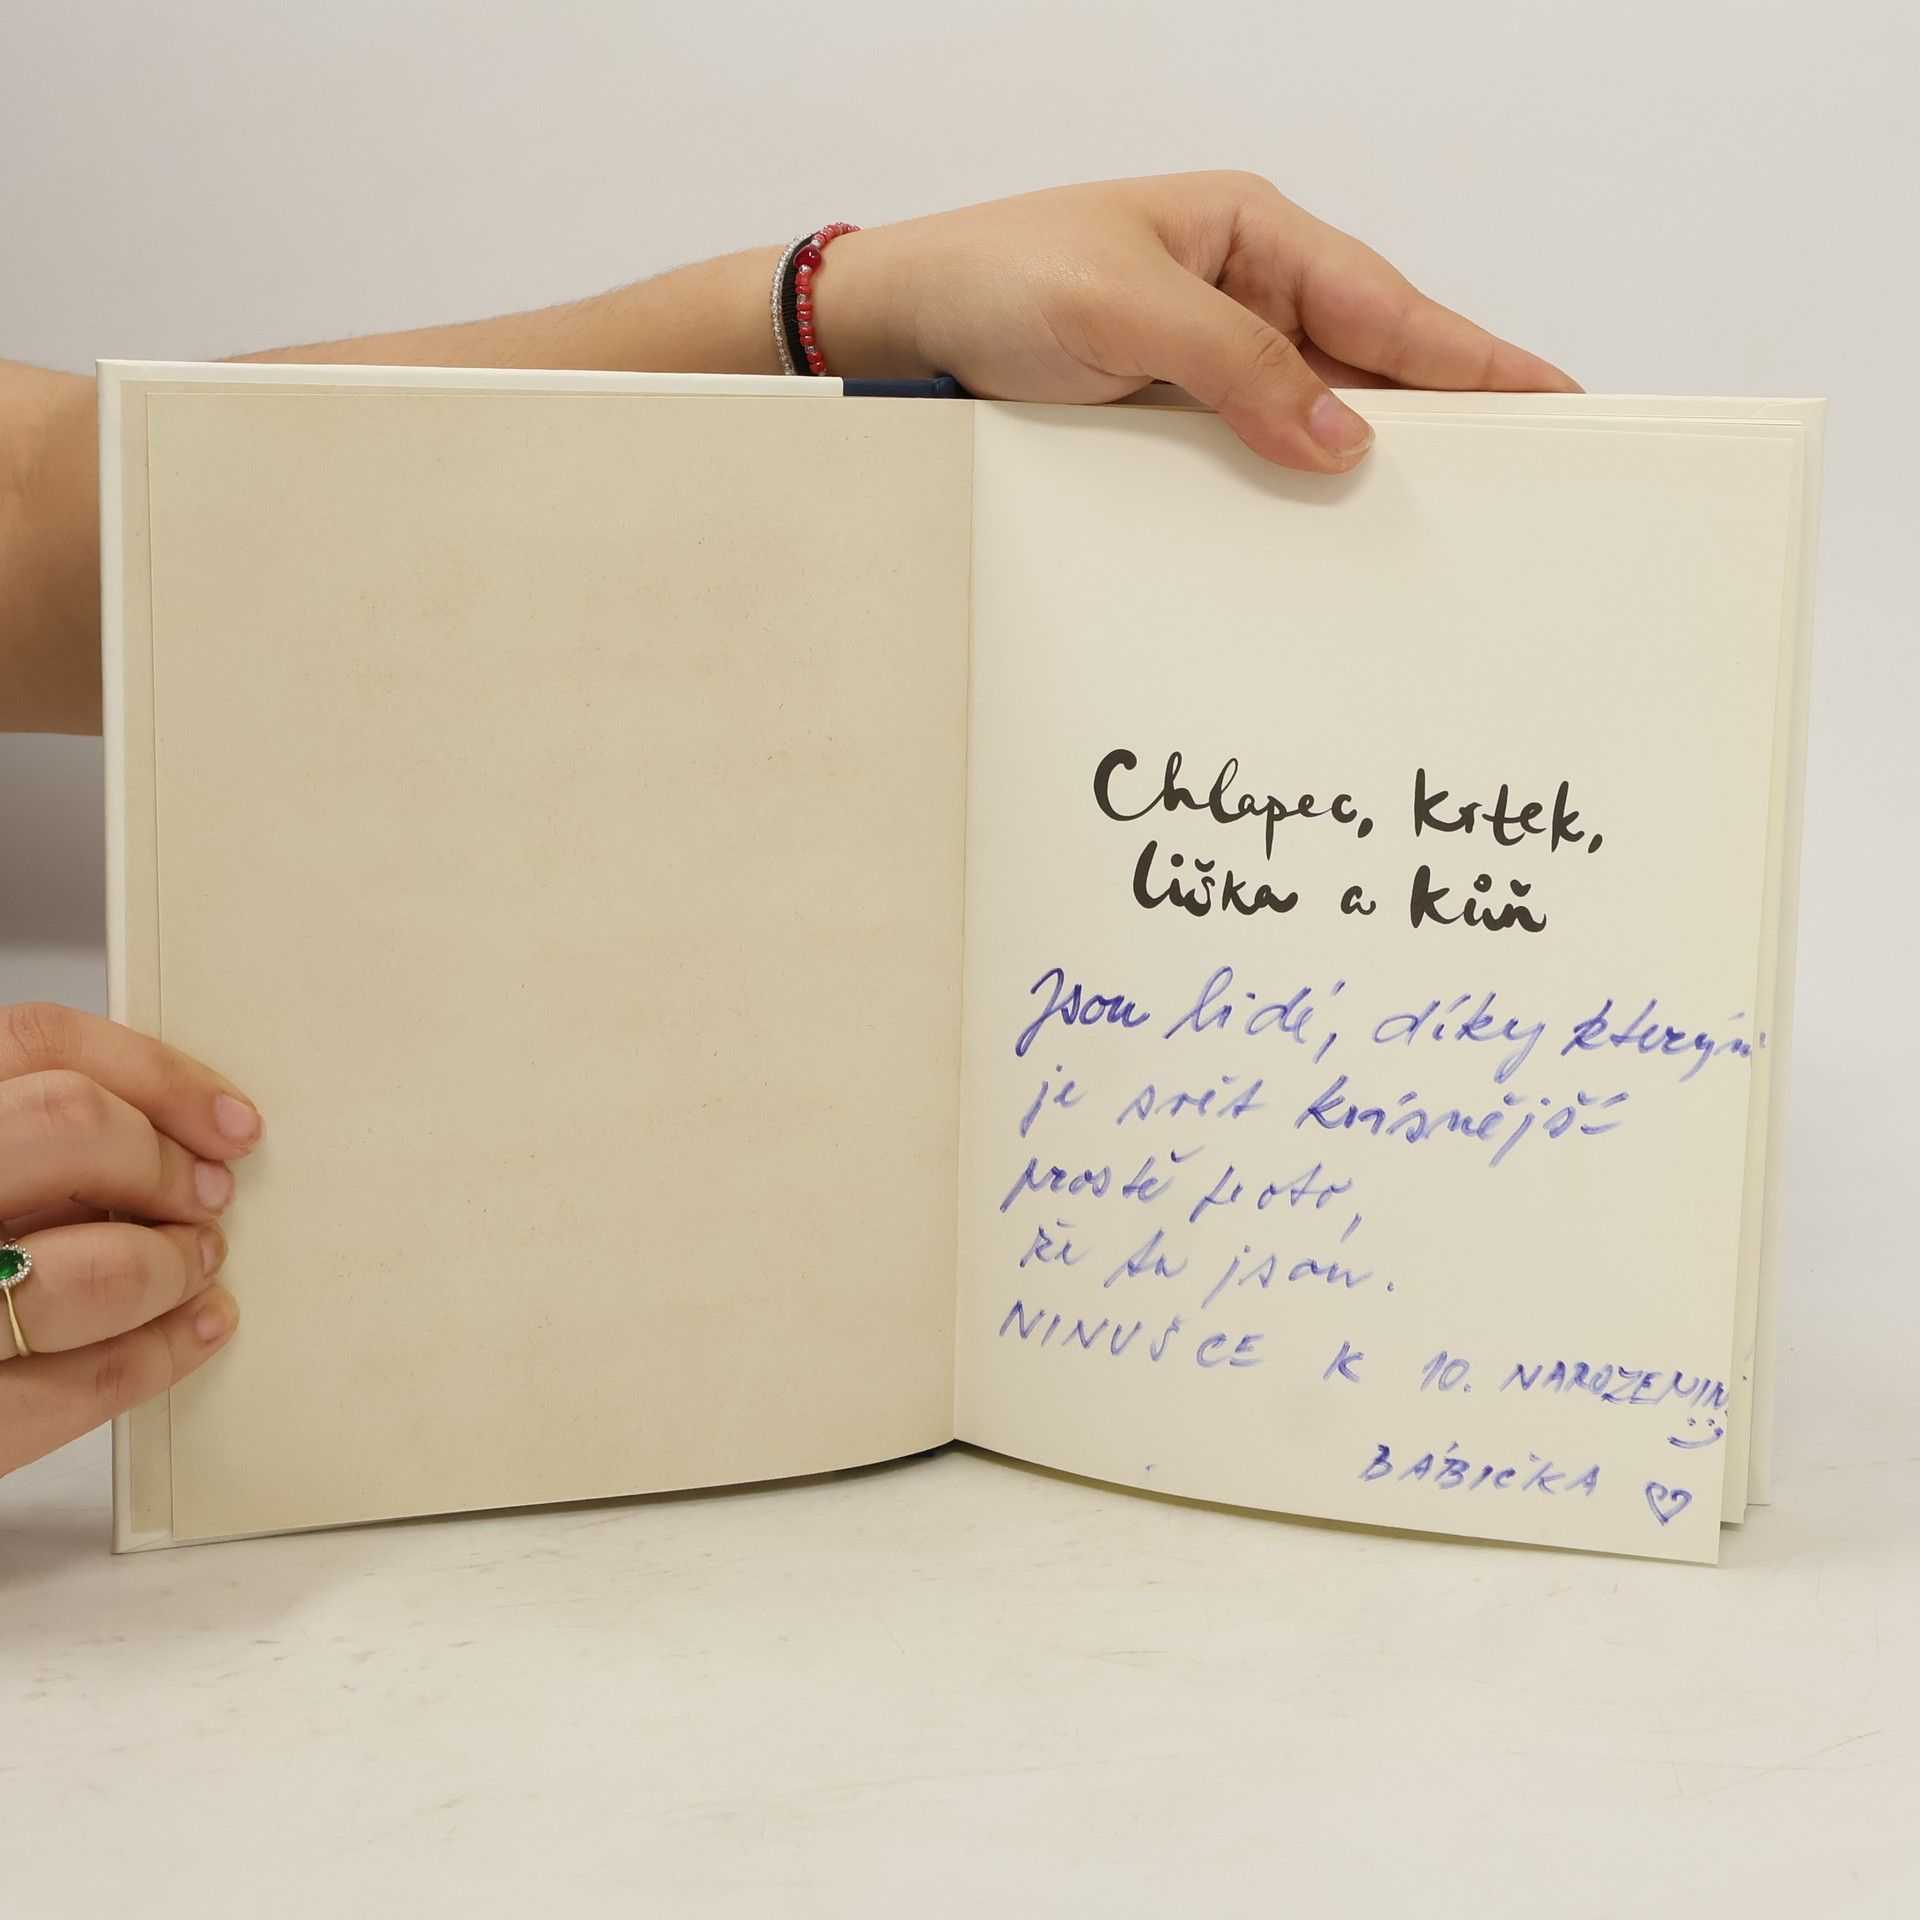 Chlapec, krtek,
liška a kůň
Jsou lidé, díky kterým
je svět krásnější
prostě proto,
že tu jsou.
NINUŠCE K 10. NAROZENINÁM
BÁBIČKA